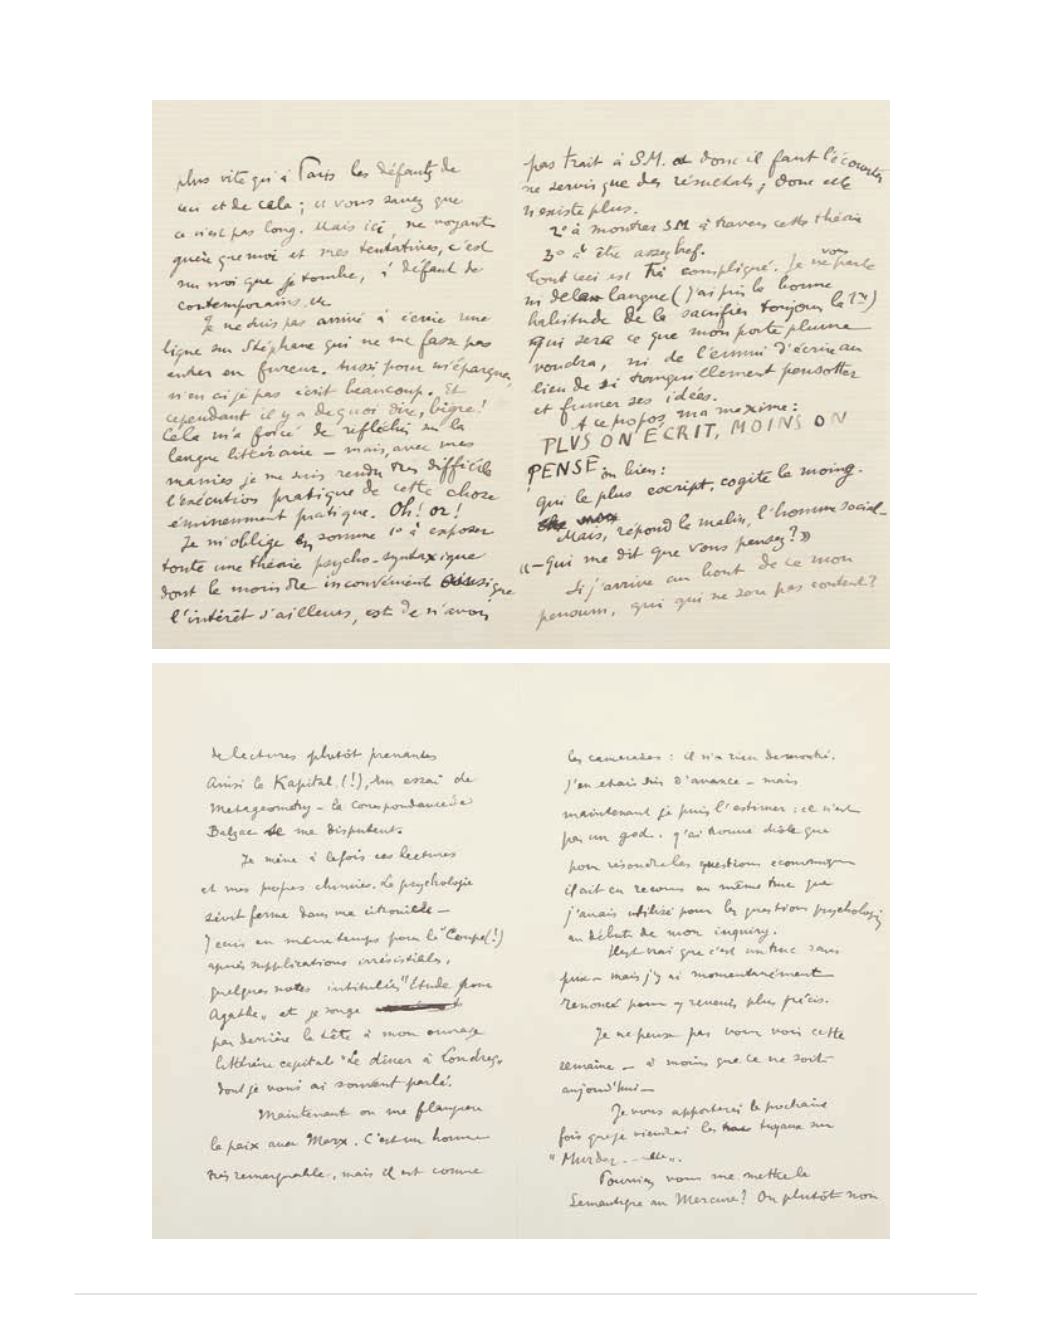 plus vite qu'à Paris les défauts de
ceci et de cela ; et vous savez que
ce n'est pas long. Mais ici, ne voyant
guère que moi et mes tentatives, c'est
sur moi que je tombe, à défaut de
contemporains, etc
Je ne suis pas arrivé à écrire une
ligne sur Stéphane qui ne me fasse pas
entrer en fureur. Aussi pour m'épargner,
n'en ai je pas écrit beaucoup. Et
cependant il y a de quoi dire, bigre!
Cela m'a forcé de réfléchir sur la
langue littéraire — mais, avec mes
manies je me suis rendu très difficile
l'exécution pratique de cette chose
éminemment pratique. Oh! or!
Je m'oblige en somme 1º à exposer
toute une théorie psycho-syntaxique
dont le moindre inconvénient
l'intérêt d'ailleurs, est de n'avoir
pas trait à S.M. et donc il faut l'écourter
ne servir que des résultats ; donc elle
n'existe plus.
2º à montrer SM à travers cette théorie
3º à être assez bref.
Tout ceci est très compliqué. Je ne vous parle
ni de la langue (j'ai pris la bonne
habitude de la sacrifier toujours la 1re)
qui sera ce que mon porte plume
voudra, ni de l'ennui d'écrire au
lieu de si tranquillement pensotter
et fumer ses idées.
A ce propos, ma maxime :
PLVS ON ÉCRIT, MOINS ON
PENSE, ou bien :
qui le plus escript, cogite le moing.
Mais, répond le malin, l'homme social—
« — Qui me dit que vous pensez? »
Si j'arrive au bout de ce mon
pensum, qui qui ne sera pas content?
de lectures plutôt prenantes
Ainsi le Kapital (!), un essai de
Metageometry — la correspondance de
Balzac se me disputent.
Je mène à la fois ces lectures
et mes propres chimies. La psychologie
sévit ferme dans ma citrouille —
J'écris en même temps pour le "Coupe (!)
après supplications irrésistibles,
quelques notes intitulées "Étude pour
Agathe" et je songe
par derrière la tête à mon ouvrage
littéraire capital "Le dîner à Londres"
dont je vous ai souvent parlé.
Maintenant on me flanquera
la paix avec Marx. C'est un homme
très remarquable, mais il est comme
les camarades : il n'a rien démontré.
J'en étais sûr d'avance — mais
maintenant je puis l'estimer : ce n'est
pas un god. J'ai trouvé drôle que
pour résoudre les questions économiques
il ait eu recours au même truc que
j'avais utilisé pour les questions psychologiq
au début de mon inquiry.
Il est vrai que c'est un truc sans
prix — mais j'y ai momentanément
renoncé pour y revenir plus précis.
Je ne pense pas vous voir cette
semaine — à moins que ce ne soit
aujourd'hui —
Je vous apporterai la prochaine
fois que je viendrai les tuyaux sur
Pourriez vous me mettre le
Semantique au Mercure? Ou plutôt non